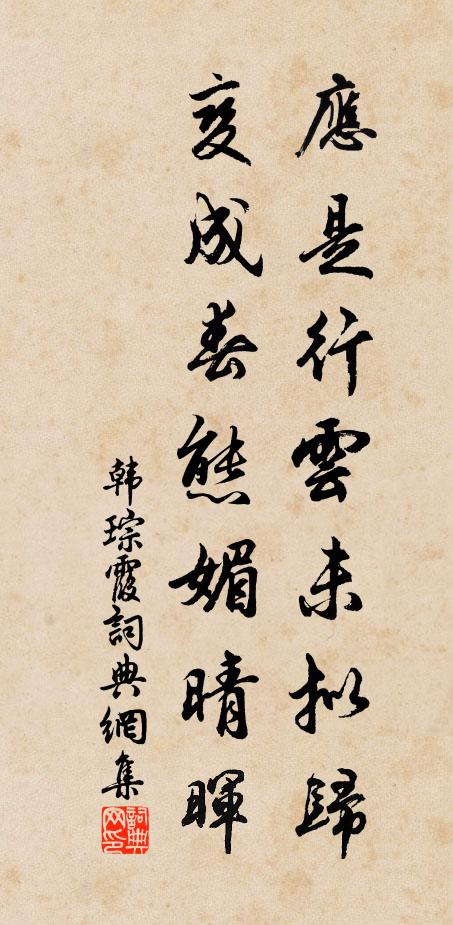 應是行雲未拟歸
变成春態媚晴暉
韩琮霞詞典網集
詞典网印